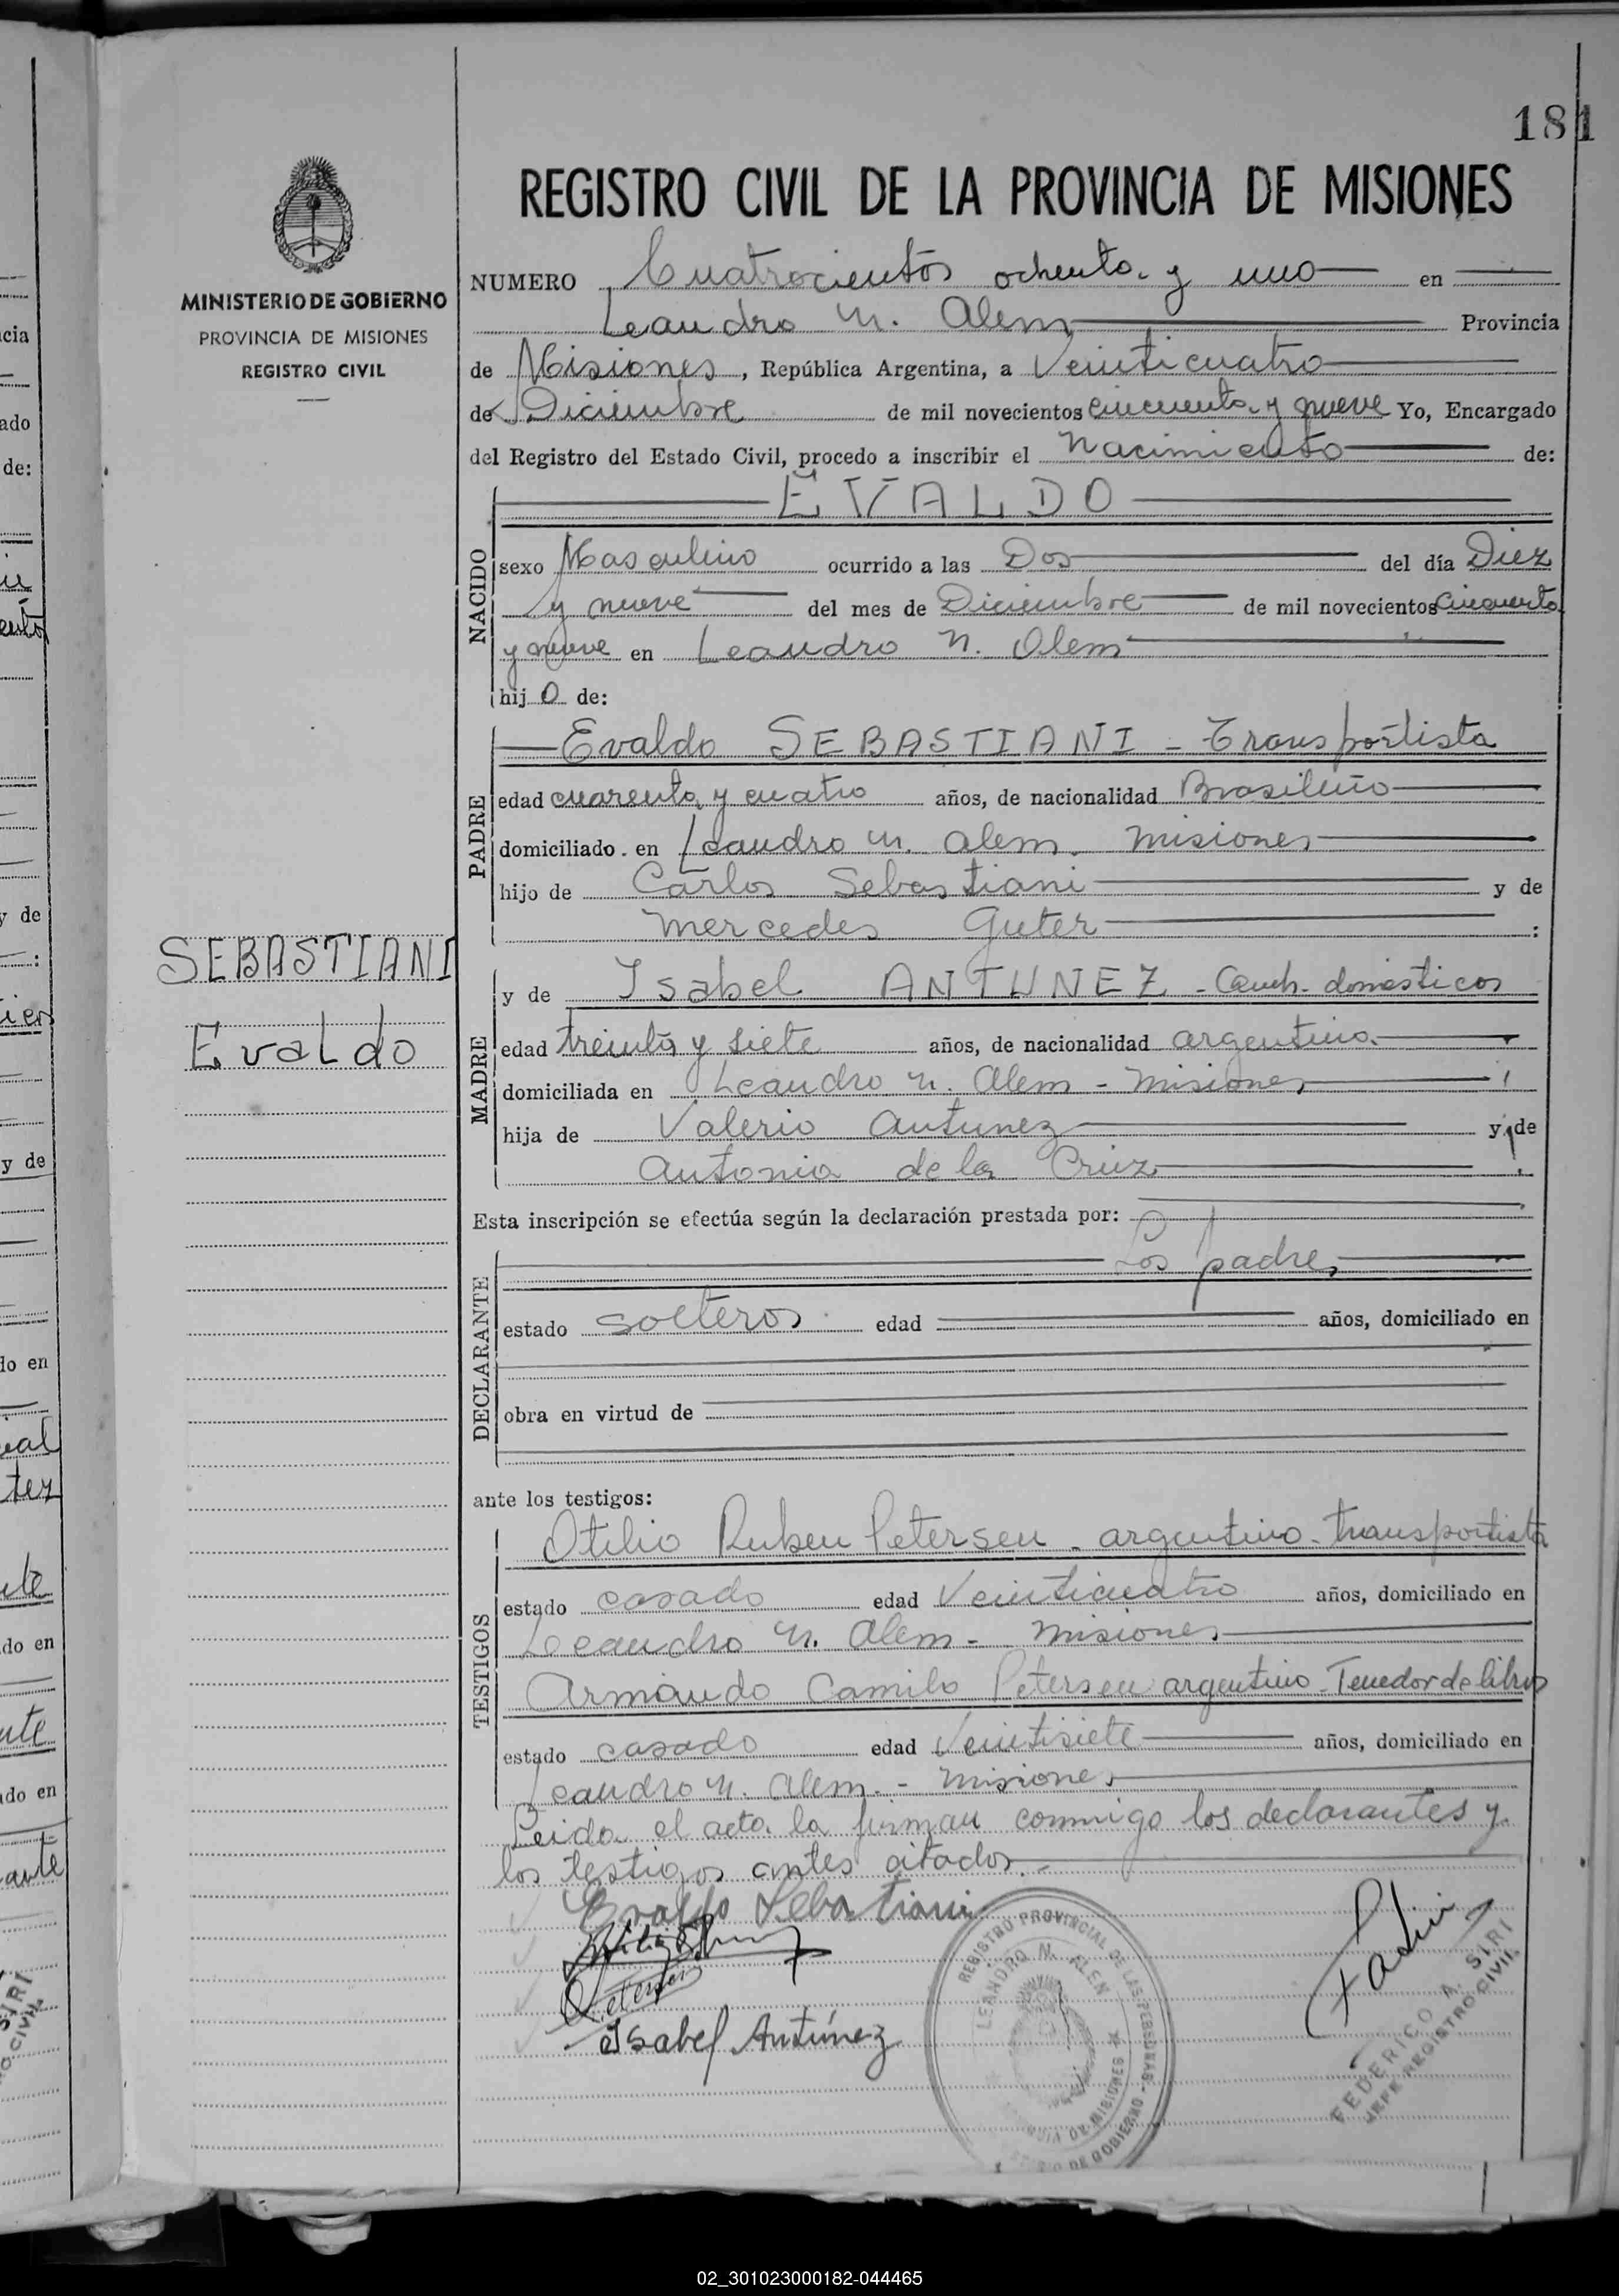 181
MINISTERIO DE GOBIERNO
PROVINCIA DE MISIONES
REGISTRO CIVIL
SEBASTIANI
Evaldo
REGISTRO CIVIL DE LA PROVINCIA DE MISIONES
NUMERO Cuatrocientos ochenta y uno en
Leandro N. Alem Provincia
de Misiones, República Argentina, a Veinticuatro
de Diciembre de mil novecientos cincuenta y nueve Yo, Encargado
del Registro del Estado Civil, procedo a inscribir el Nacimiento de:
EVALDO
NACIDO
sexo Masculino ocurrido a las Dos del día Diez
y nueve del mes de Diciembre de mil novecientos cincuenta
y nueve en Leandro N. Alem
hijo de:
PADRE
Evaldo SEBASTIANI - Transportista
edad cuarenta y cuatro años, de nacionalidad Brasileño
domiciliado en Leandro N. Alem. Misiones
hijo de Carlos Sebastiani y de
Mercedes Guter :
MADRE
y de Isabel ANTUNEZ - Queh. domésticos
edad treinta y siete años, de nacionalidad argentina
domiciliada en Leandro N. Alem - Misiones
hija de Valerio Antunez y de
Antonia de la Cruz
Esta inscripción se efectúa según la declaración prestada por:
DECLARANTE
Los padres
estado solteros edad años, domiciliado en
obra en virtud de
ante los testigos:
TESTIGOS
Otilio Ruben Petersen - argentino - transportista
estado casado edad Veinticuatro años, domiciliado en
Leandro N. Alem - Misiones
Armando Camilo Petersen argentino - Tenedor de libros
estado casado edad Veintisiete años, domiciliado en
Leandro N. Alem. - Misiones
Leida el acta la firman conmigo los declarantes y
los testigos antes citados.-
Evaldo Sebatiani
Petersen
Isabel Antúnez
REGISTRO PROVINCIAL DE LAS PERSONAS
LEANDRO N. ALEM
MISIONES
DE GOBIERNO
FEDERICO A. SIRI
JEFE REGISTRO CIVIL
cia
ado
de:
y de
y de
do en
do en
do en
02_301023000182-044465